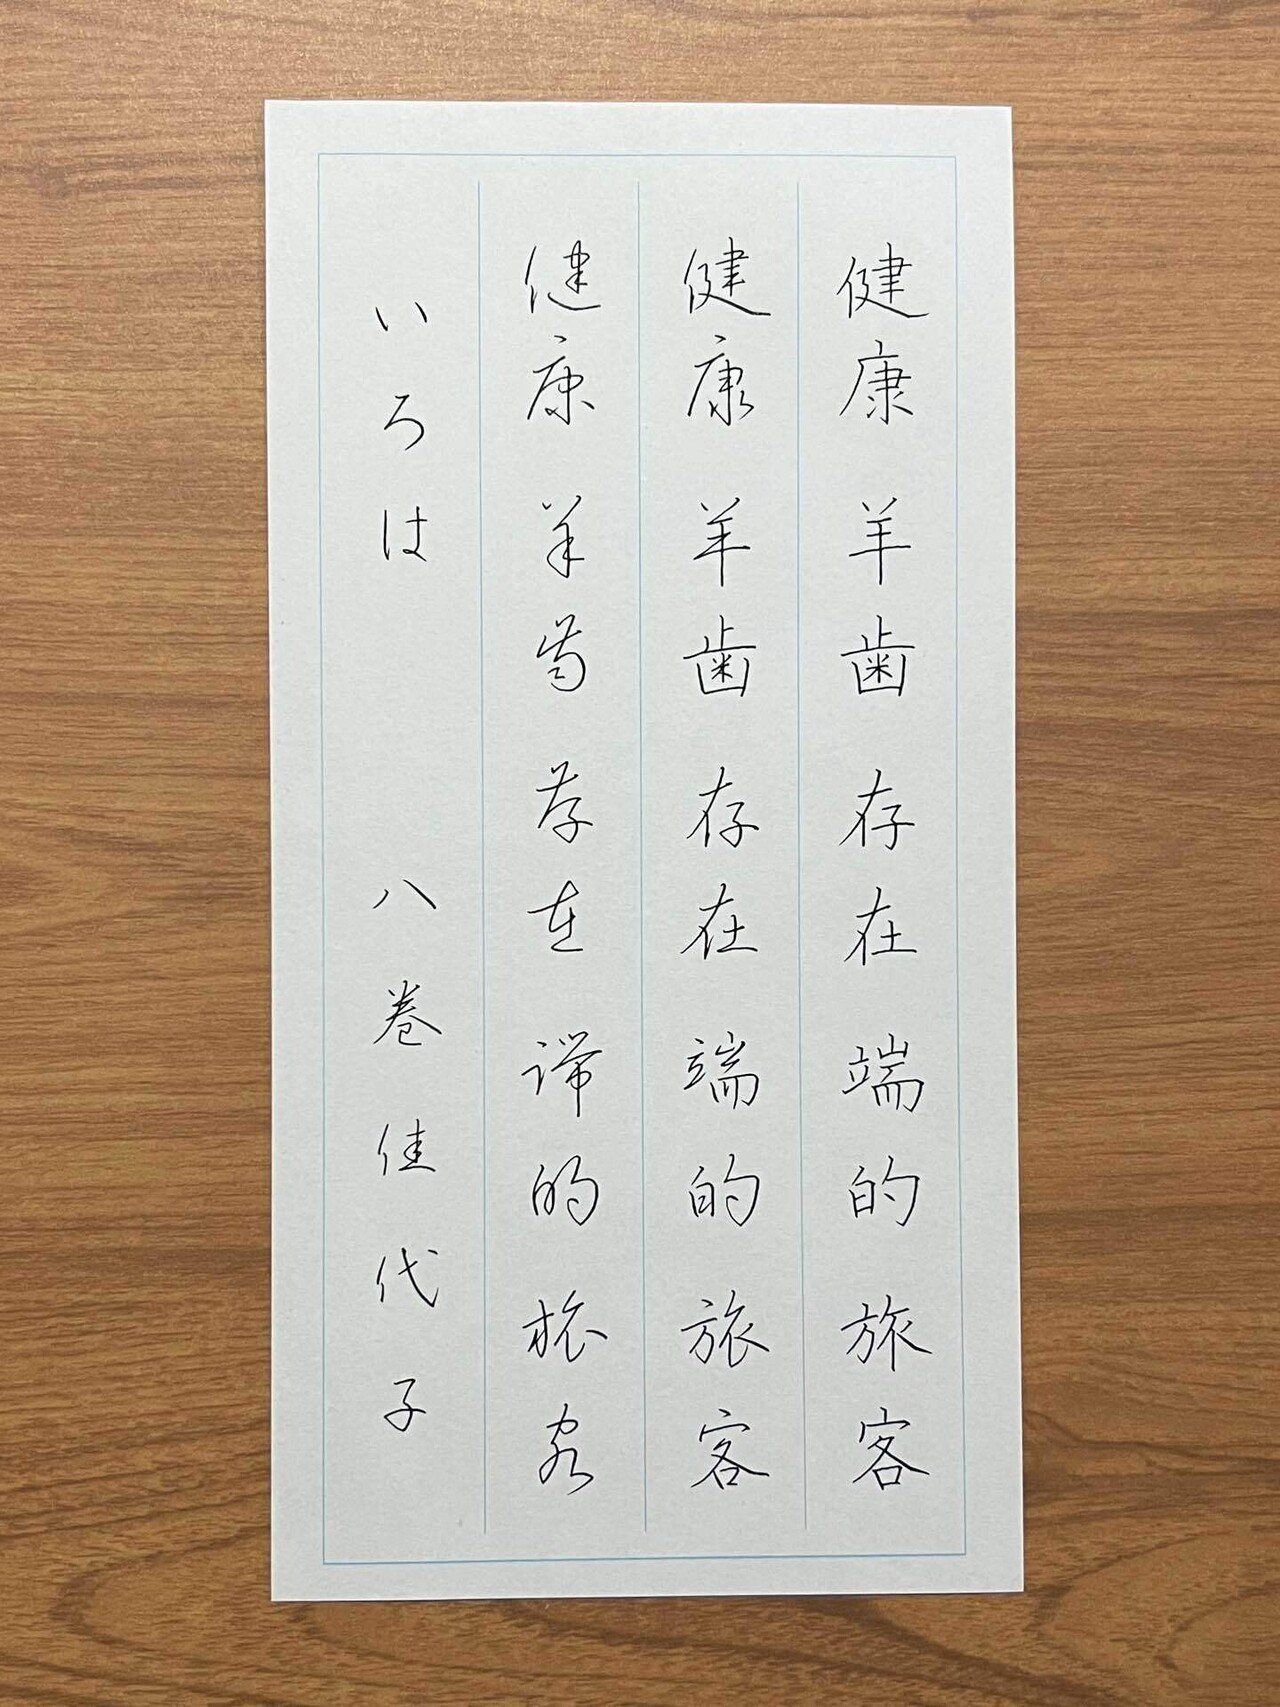 健康 羊歯 存在 端的 旅客
健康 羊歯 存在 端的 旅客
健康 羊歯 存在 端的 旅客
いろは 八巻佳代子